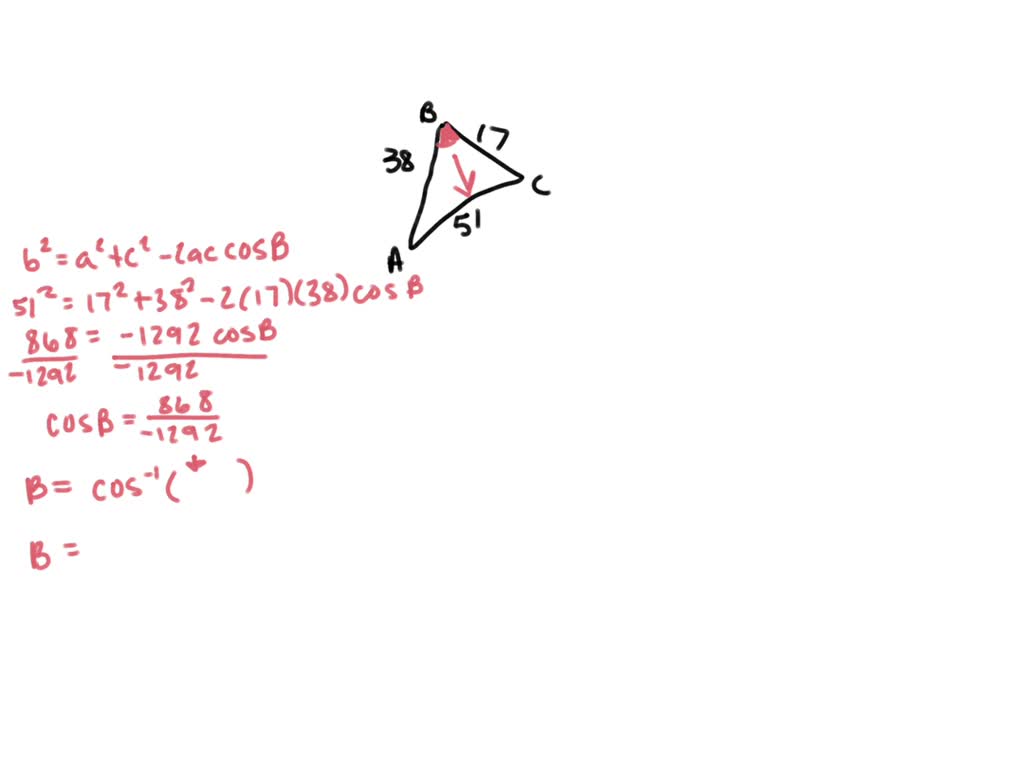 B
17
38
C
51
A
b² = a² + c² - 2ac cosB
51² = 17² + 38² - 2(17)(38) cos B
868 = -1292 cosB
-1292 -1292
cosB = 868
-1292
B = cos⁻¹( )
B =